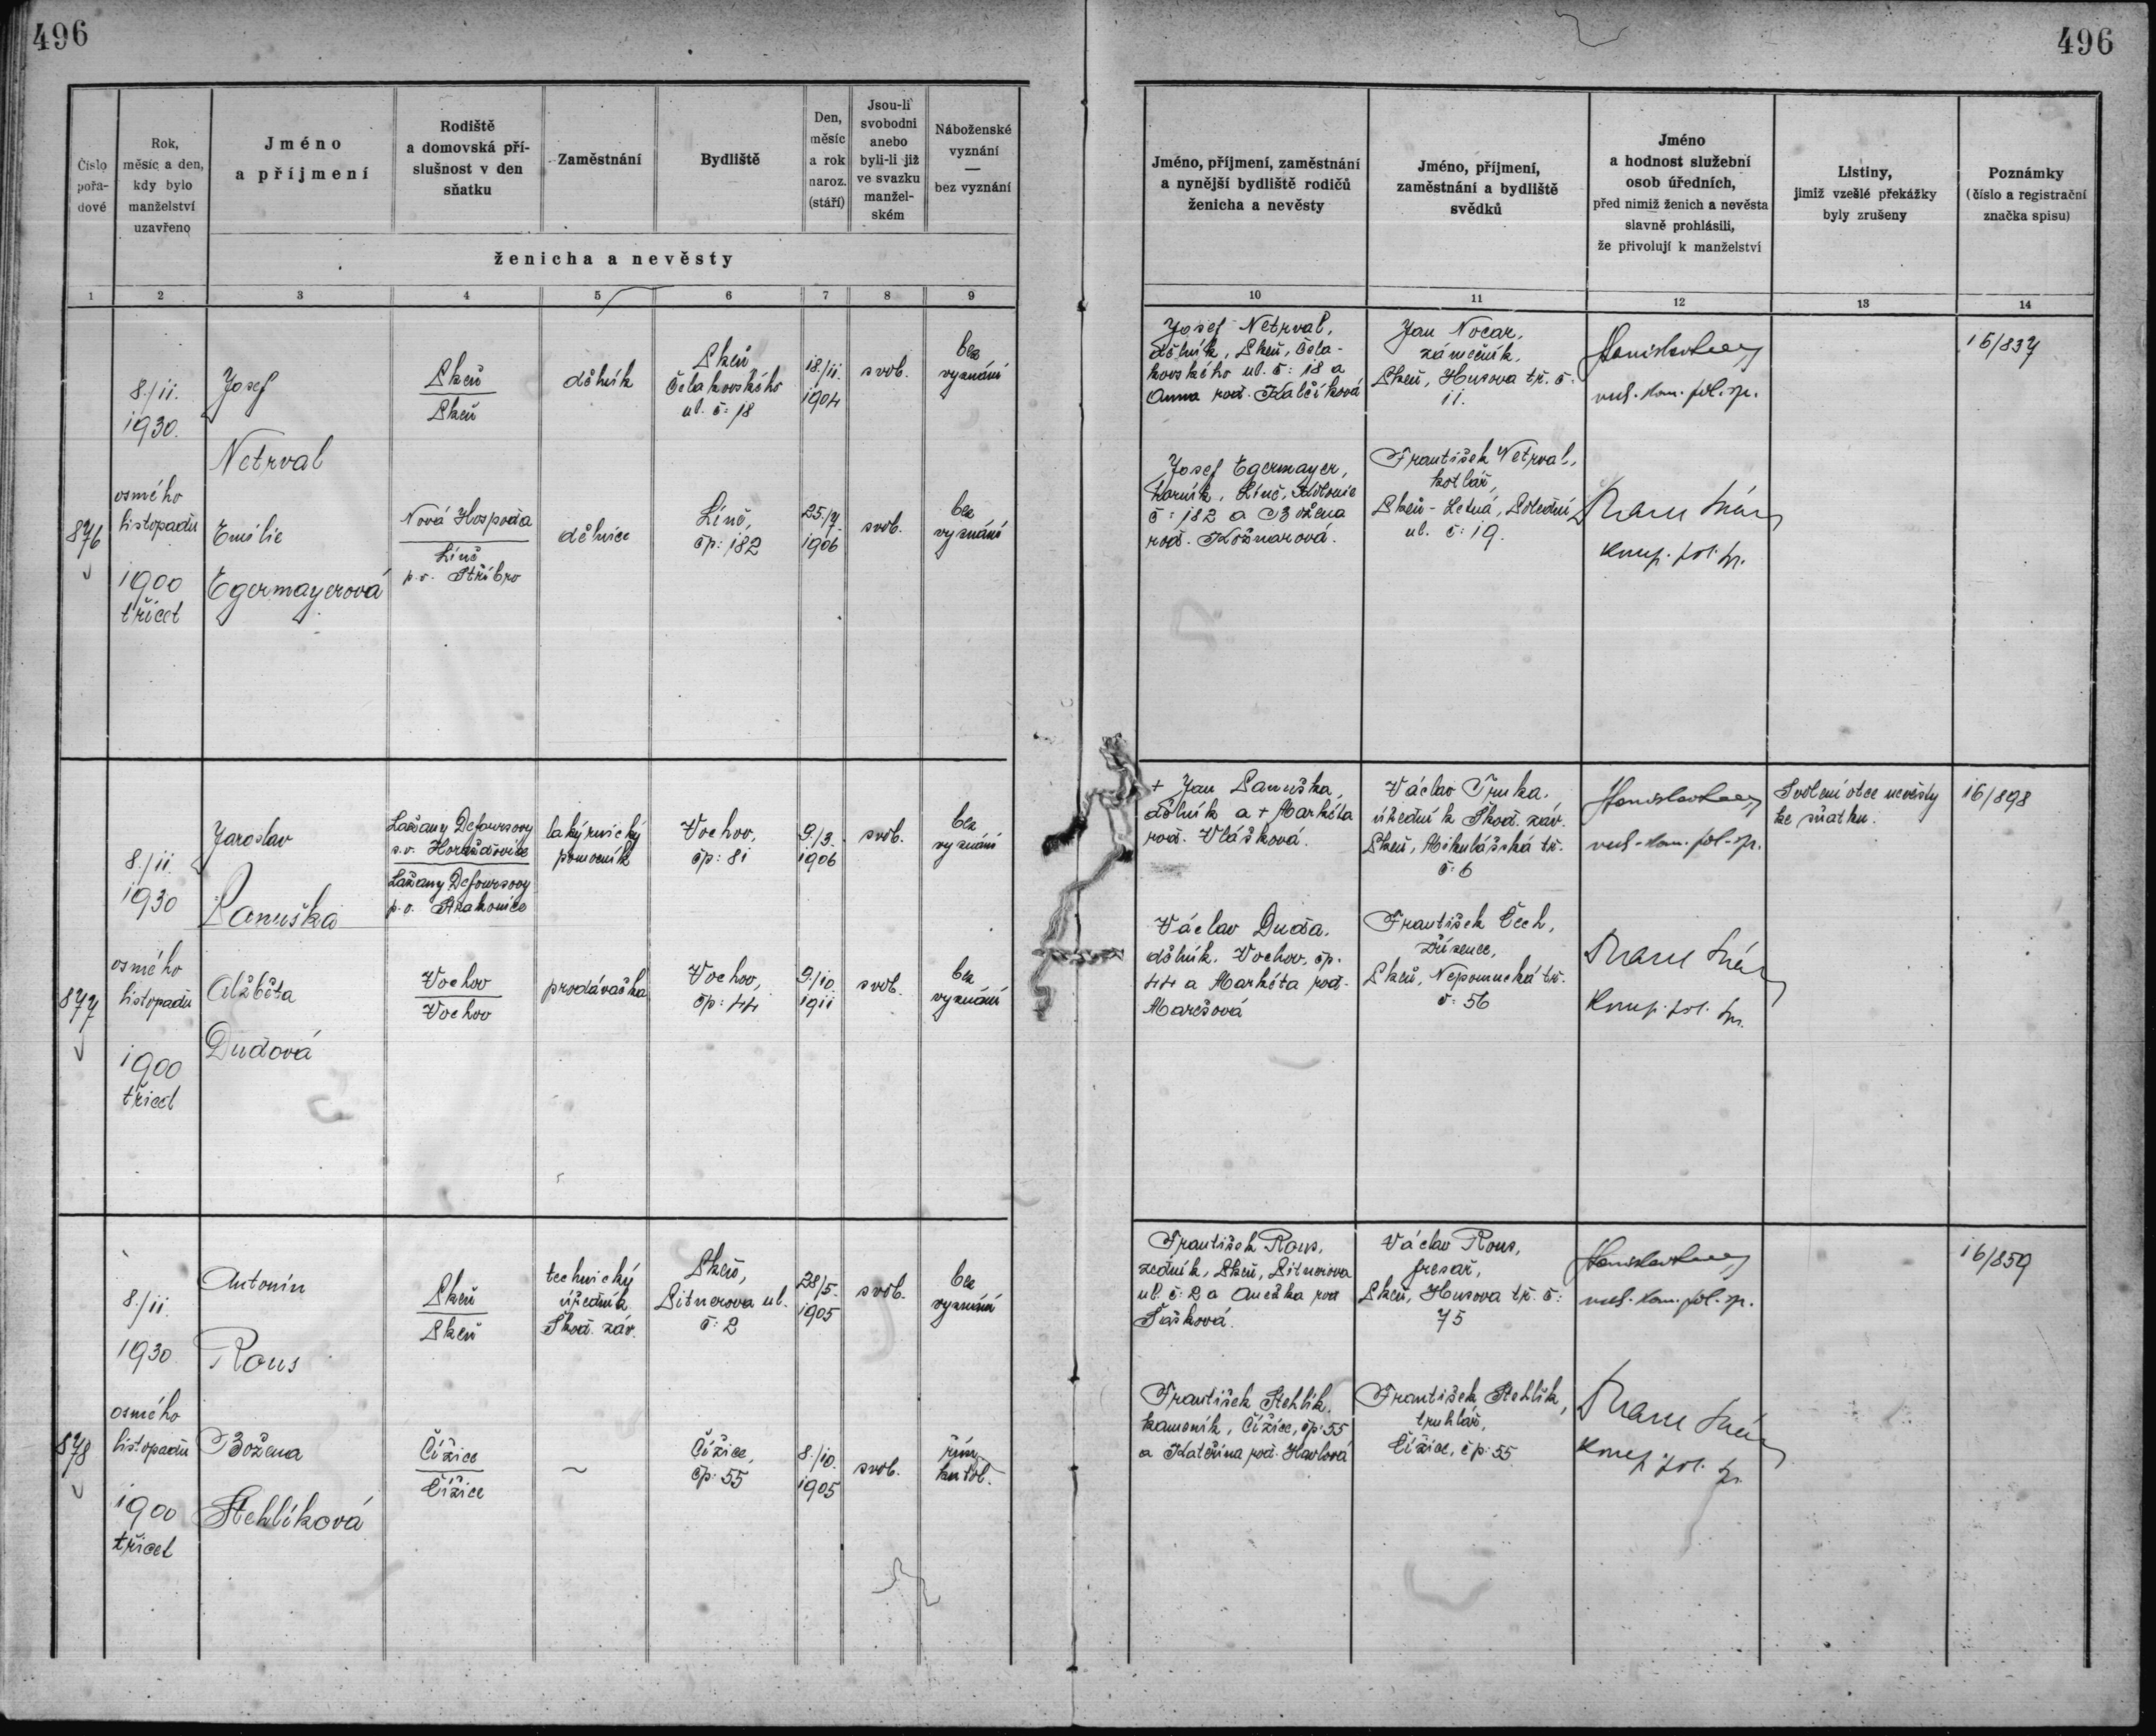 496
496
Číslo
pořa-
dové
Rok,
měsíc a den,
kdy bylo
manželství
uzavřeno
Jméno
a příjmení
Rodiště
a domovská pří-
slušnost v den
sňatku
Zaměstnání
Bydliště
Den,
měsíc
a rok
naroz.
(stáří)
Jsou-li
svobodni
anebo
byli-li již
ve svazku
manžel-
ském
Náboženské
vyznání
—
bez vyznání
ženicha a nevěsty
Jméno, příjmení, zaměstnání
a nynější bydliště rodičů
ženicha a nevěsty
Jméno, příjmení,
zaměstnání a bydliště
svědků
Jméno
a hodnost služební
osob úředních,
před nimiž ženich a nevěsta
slavně prohlásili,
že přivolují k manželství
Listiny,
jimiž vzešlé překážky
byly zrušeny
Poznámky
(číslo a registrační
značka spisu)
1 2 3 4 5 6 7 8 9 10 11 12 13 14
876
8./11.
1930.
osmého
listopadu
1900
třicet
Josef
Netrval
Plzeň
Plzeň
dělník
Plzeň,
Čelakovského
ul. č: 18
18./11.
1904
svob.
bez
vyznání
Josef Netrval,
dělník, Plzeň, Čela-
kovského ul. č: 18 a
Anna roz. Kalčíková
Jan Nocar,
zámečník,
Plzeň, Husova tř. č:
11.
pol. sp.
16/837
Emilie
Egermayerová
Nová Hospoda
Líně
p.o. Stříbro
dělnice
Líně,
čp: 182
25./7.
1906
svob.
bez
vyznání
Josef Egermayer,
horník, Líně, Kolonie
č: 182 a Božena
roz. Kožnarová.
František Netrval,
kotlář,
Plzeň - Letná, Polední
ul. č: 19.
877
8./11.
1930
osmého
listopadu
1900
třicet
Jaroslav
Panuška
Lažany Defoursovy
s.o. Horažďovice
Lažany Defoursovy
p.o. Strakonice
lakýrnický
pomocník
Vochov,
čp: 81
9./3.
1906
svob.
bez
vyznání
+ Jan Panuška,
dělník a + Markéta
roz. Vlášková.
Václav Trnka,
úředník Škod. záv.
Plzeň, Mikulášská tř.
č: 6
pol. sp.
Svolení otce nevěsty
ke sňatku.
16/898
Alžběta
Dudová
Vochov
Vochov
prodavačka
Vochov,
čp: 44
9./10.
1911
svob.
bez
vyznání
Václav Duda,
dělník, Vochov, čp.
44 a Markéta roz.
Marešová
František Čech,
zřízenec,
Plzeň, Nepomucká tř.
č: 56
878
8./11.
1930
osmého
listopadu
1900
třicet
Antonín
Rous
Plzeň
Plzeň
technický
úředník
Škod. záv.
Plzeň,
Pitnerova ul.
č: 2
28/5.
1905
svob.
bez
vyznání
František Rous,
zedník, Plzeň, Pitnerova
ul. č: 2 a Anežka roz
Šašková.
Václav Rous,
fresař,
Plzeň, Husova tř. č:
75
pol. sp.
16/859
Božena
Stehlíková
Čižice
Čižice
~
Čižice,
čp: 55
8./10.
1905
svob.
řím.
katol.
František Stehlík,
kameník, Čižice, čp: 55
a Kateřina roz. Havlová
František Stehlík,
truhlář,
Čižice, čp: 55